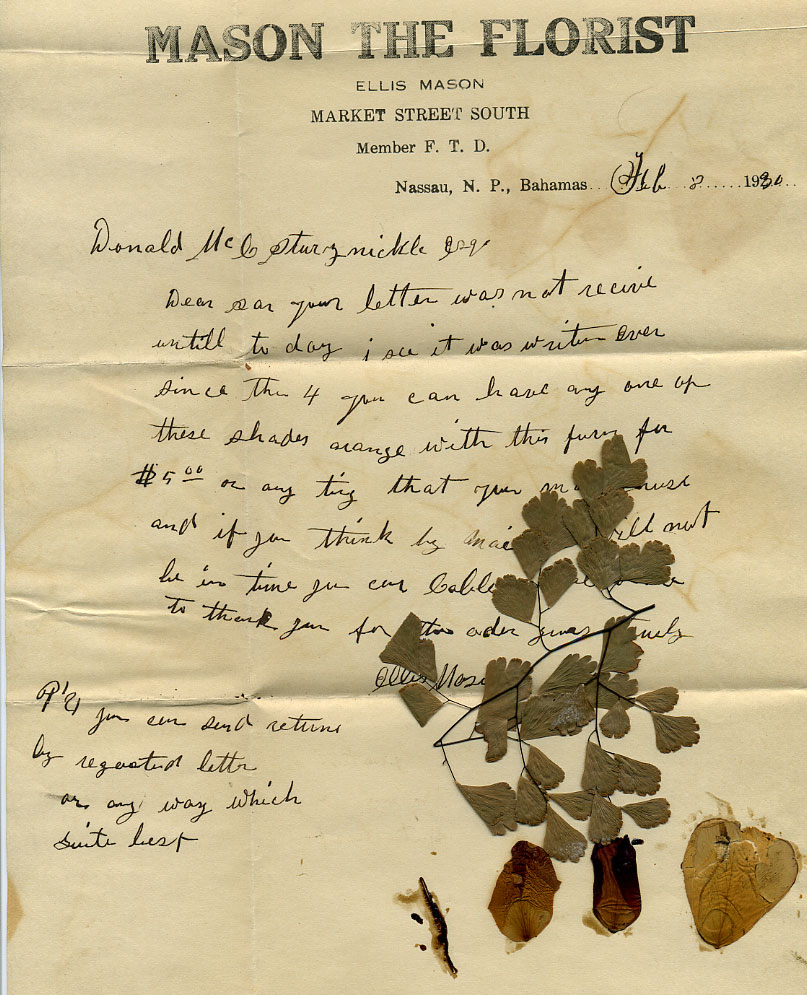 MASON THE FLORIST
ELLIS MASON
MARKET STREET SOUTH
Member F. T. D.
Nassau, N. P., Bahamas.. Feb 8 ......1930...
Donald McC Esqr
Dear sar your letter was not recive
untill to day i see it was writen ever
since the 4 you can have any one of
these shades arange with this furn for
$5 00 or any ting that you
and if you think by will not
be in time you can Cable
to thank you for the oder yours truly
Ellis
you can send return
by letter
or any way which
suite best